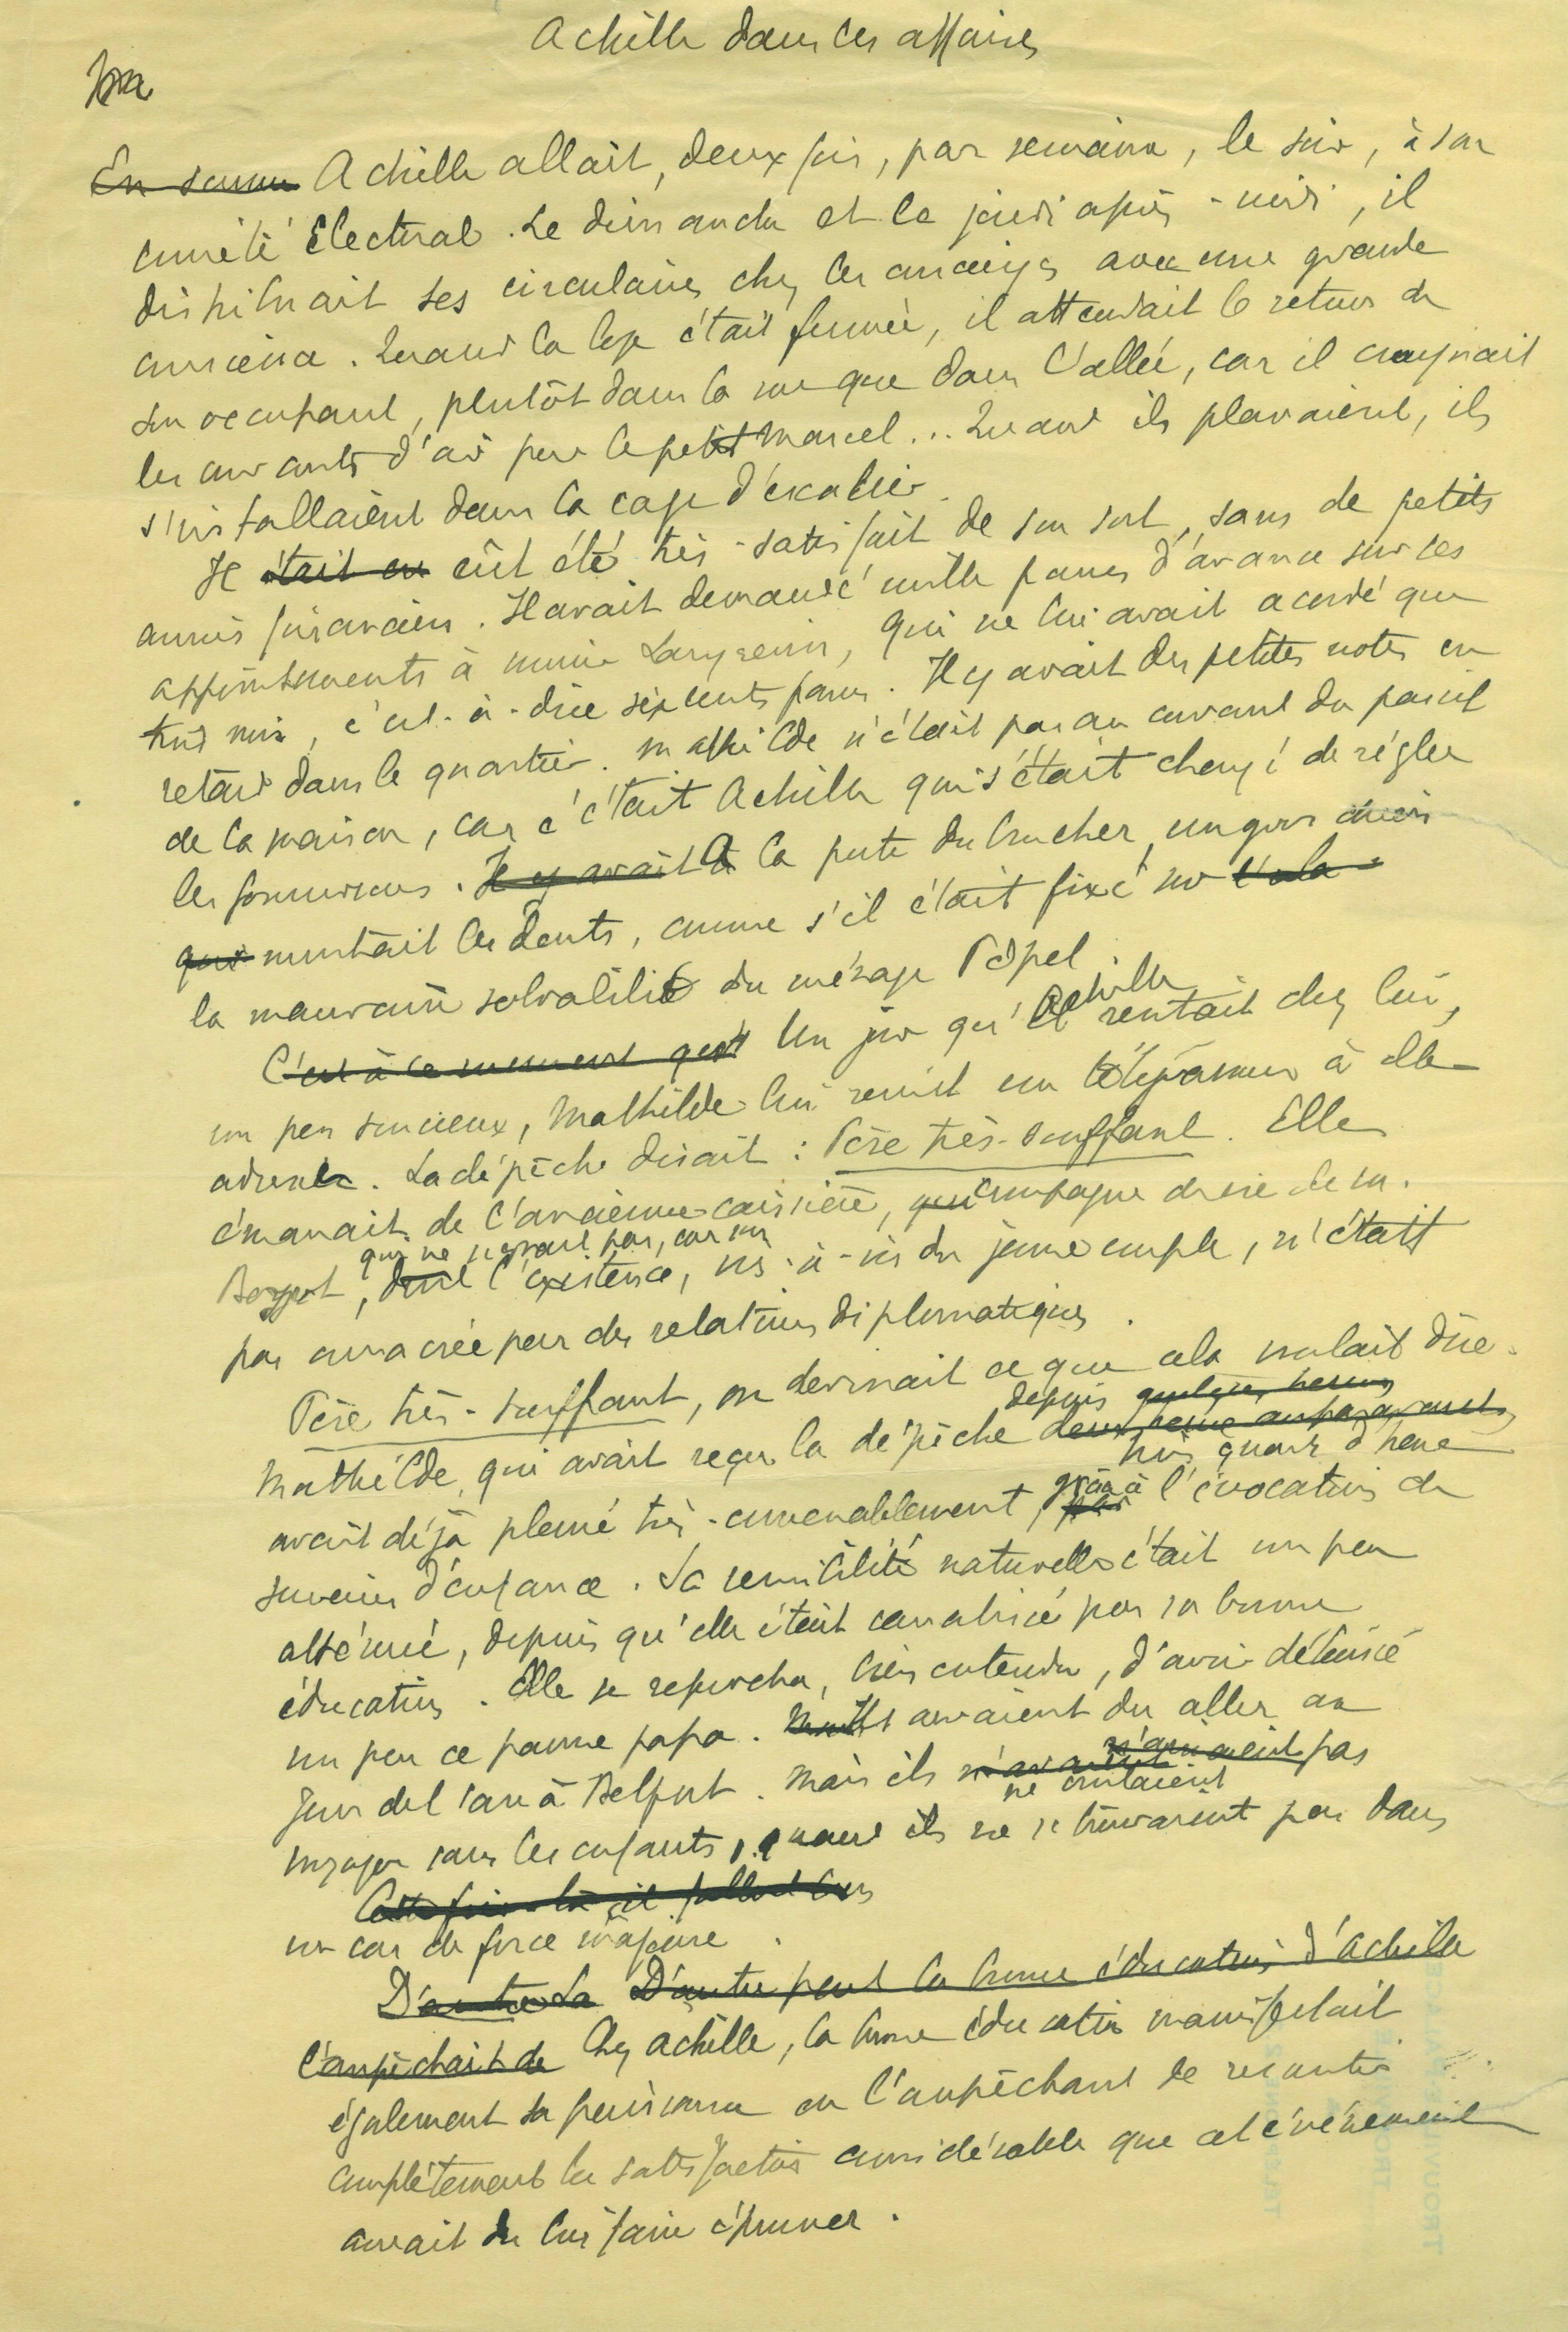 Achille dans les affaires
En somme Achille allait, deux fois, par semaine, le soir, à son
comité électoral. Le dimanche et le jeudi après-midi, il
distribuait ses circulaires chez les concierges avec une grande
conscience. Quand la loge était fermée, il attendait le retour de
son occupant, plutôt dans la rue que dans l'allée, car il craignait
les courants d'air pour le petit Marcel... Quand ils pleuvaient, ils
s'installaient dans la cage d'escalier.
Il était en eût été très-satisfait de son sort, sans de petits
ennuis financiers. Il avait demandé mille francs d'avance sur ses
appointements à qui ne lui avait accordé que
trois mois, c'est-à-dire six cents francs. Il y avait des petites notes en
retard dans le quartier. Mathilde n'était pas au courant du passif
de la maison, car c'était Achille qui s'était chargé de régler
les fournisseurs. Il y avait À la porte du boucher, un gros chien
qui montrait les dents, comme s'il était fixé sur cela
la mauvaise solvabilité du ménage Popel.
C'est à ce moment qu'il Un jour qu'il Achille rentrait chez lui,
un peu soucieux, Mathilde lui remit un télégramme à elle
adressé. La dépêche disait : Père très-souffrant. Elle
émanait de l'ancienne caissière, compagne de vie de M.
qui ne signait pas, car son
, dont l'existence, vis-à-vis du jeune couple, n'était
pas consacrée par des relations diplomatiques.
Père très-souffrant, on devinait ce que cela voulait dire.
depuis quelques heures
Mathilde, qui avait reçu la dépêche deux heures auparavant,
trois quarts d'heure
avait déjà pleuré très-convenablement, par grâce à l'évocation de
souvenirs d'enfance. Sa sensibilité naturelle était un peu
atténuée, depuis qu'elle était canalisée par sa bonne
éducation. Elle se reprocha, bien entendu, d'avoir délaissé
un peu ce pauvre papa. Ils auraient du aller au
Jour de l'an à Belfort. Mais ils n'avaient n'aimaient pas
ne voulaient
voyager sans les enfants, quand ils ne se trouvaient pas dans
Cette fois-là il fallait bien
un cas de force majeure.
D'autre La D'autre part la bonne éducation d'Achille
l'empêchait de Chez Achille, la bonne éducation manifestait
également sa puissance en l'empêchant de ressentir
complètement la satisfaction considérable que cet événement
aurait du lui faire éprouver.